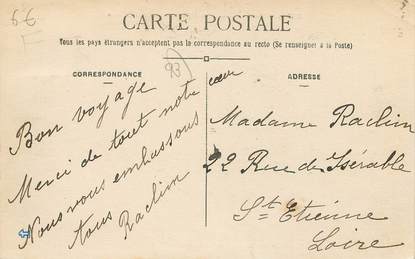 6€
CARTE POSTALE
Tous les pays étrangers n'acceptent pas la correspondance au recto (Se renseigner à la Poste)
93
CORRESPONDANCE
ADRESSE
Bon voyage
Merci de tout notre cœur
Nous vous embrassons
tous
Raclim
Madame Raclim
22 Rue de Isérable
St. Etienne
Loire